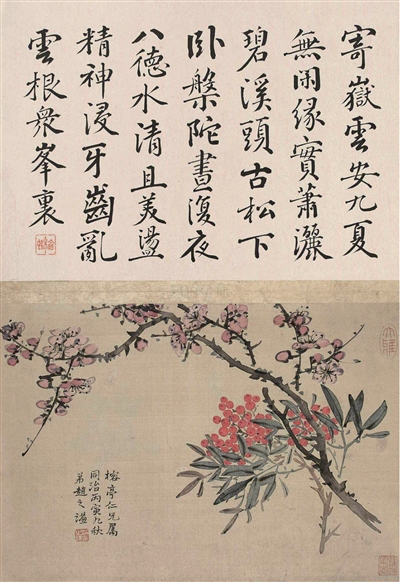 寄嶽雲安九夏
無閑緣實蕭灑
碧溪頭古松下
卧槃陀晝復夜
八德水清且美盪
精神浸牙齒亂
雲根衆峯裏
亭仁兄屬
同治丙寅九秋
弟趙之謙